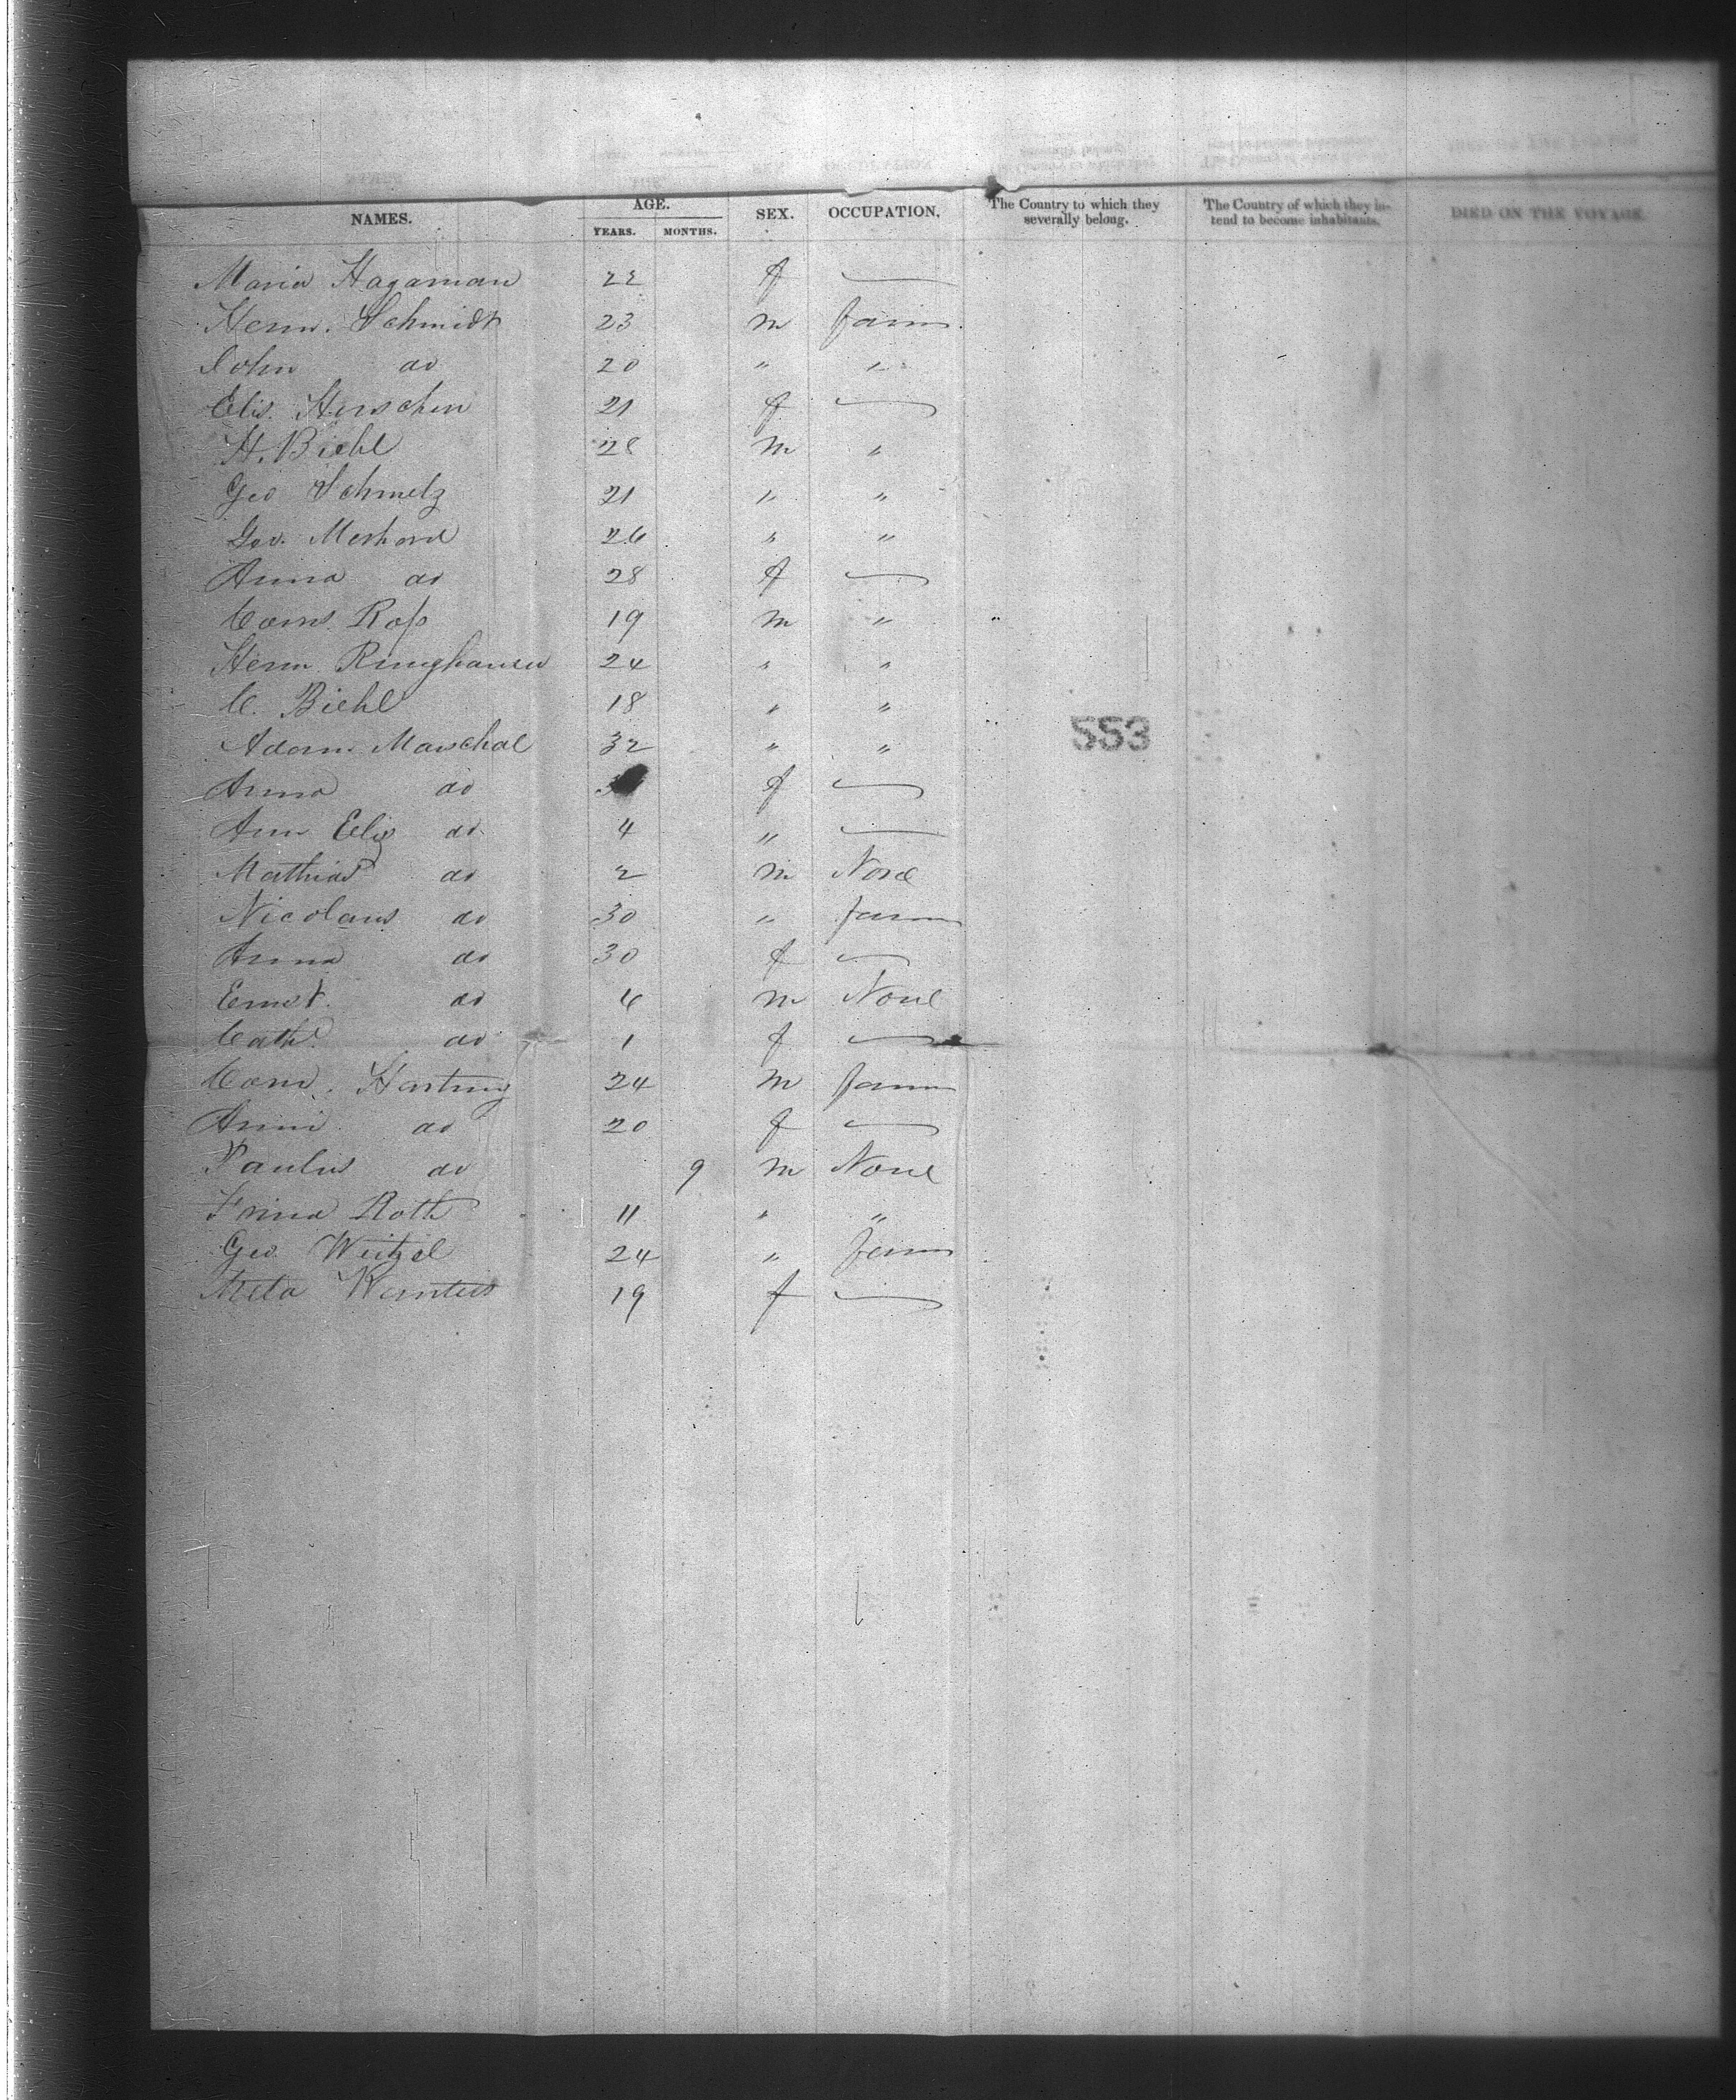 NAMES. AGE. SEX. OCCUPATION. The Country to which they severally belong. The Country of which they intend to become inhabitants. DIED ON THE VOYAGE.
YEARS. MONTHS.
Maria Hagaman 22 f —
Herm. Schmidt 23 m farm
John do 20 " "
Elis. 21 f —
H. Biehl 28 m "
Geo Schmelz 21 " "
Geo. 26 " "
Anna do 28 f —
Roſs 19 m "
Herm Ringhausen 24 " "
C. Biehl 18 " "
Adam Marschal 32 " "
Anna do f —
Ann Eliz do 4 " —
Mathias do 2 m None
Nicolaus do 30 " farm
Anna do 30 f —
Ernst do 4 m None
Cath. do 1 f —
Conr. Hartung 24 m farm
Anna do 20 f —
Paulus do 9 m None
Roth 11 " "
Geo Weitzel 24 " farm
Meta 19 f —
553